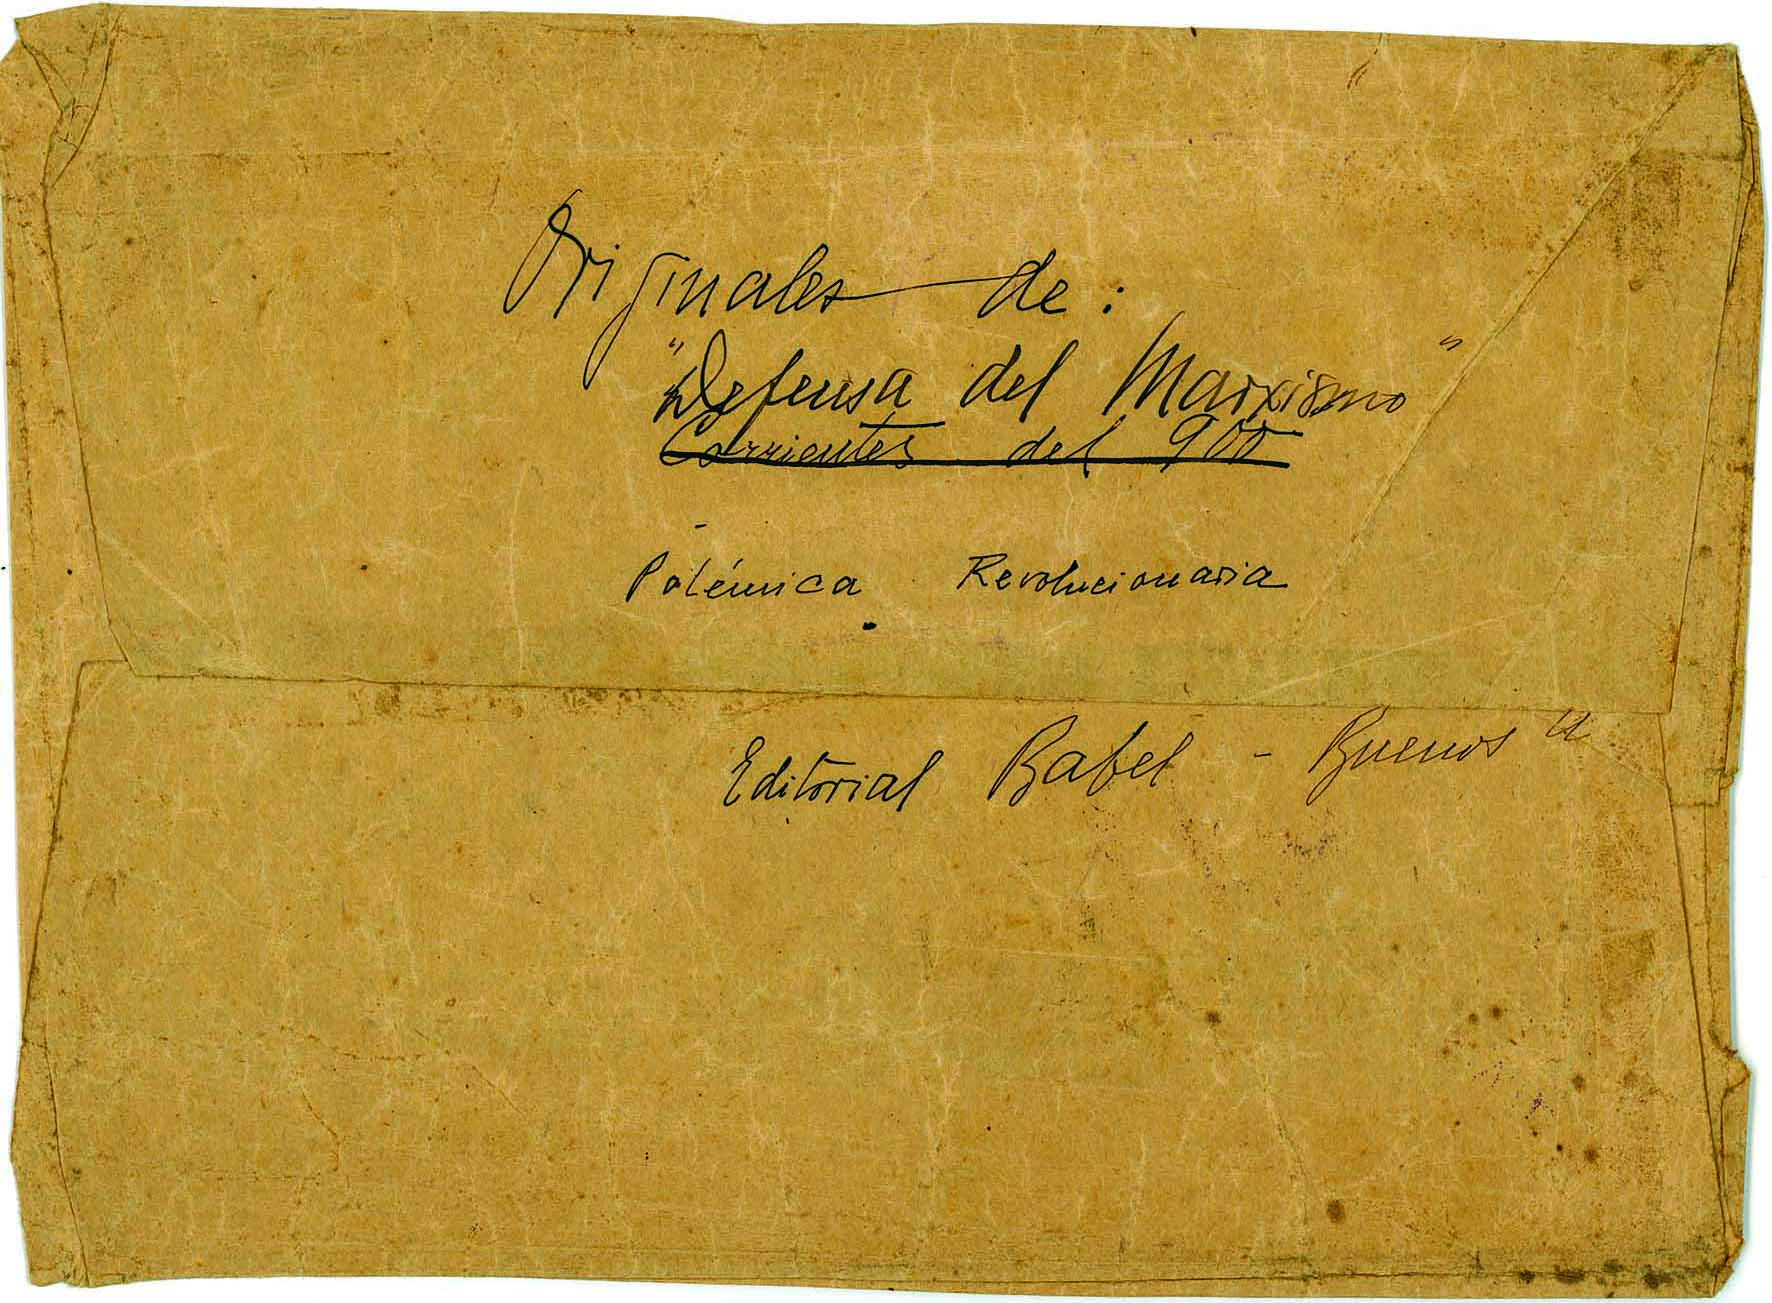 Originales de:
"Defensa del Marxismo"
Corrientes del 900
Polémica Revolucionaria
Editorial Babel - Buenos A